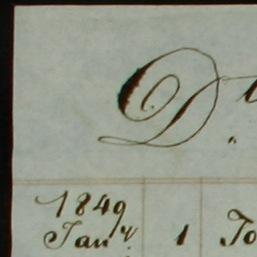 D
1849
Jany 1 To